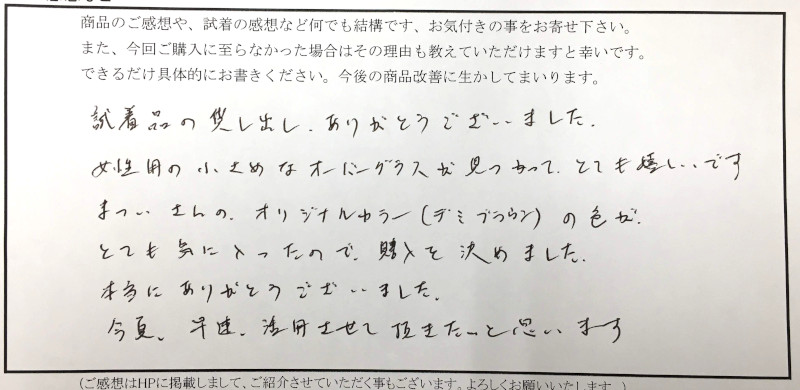 商品のご感想や、試着の感想など何でも結構です、お気付きの事をお寄せ下さい。
また、今回ご購入に至らなかった場合はその理由も教えていただけますと幸いです。
できるだけ具体的にお書きください。今後の商品改善に生かしてまいります。
試着品の貸し出し、ありがとうございました。
女性用の小さめなオーバーグラスが見つかって、とても嬉しいです
まついさんの、オリジナルカラー(デミブラウン)の色が、
とても気に入ったので、購入を決めました。
本当にありがとうございました。
今夏、早速、活用させて頂きたいと思います
(ご感想はHPに掲載しまして、ご紹介させていただく事もございます。よろしくお願いいたします。)